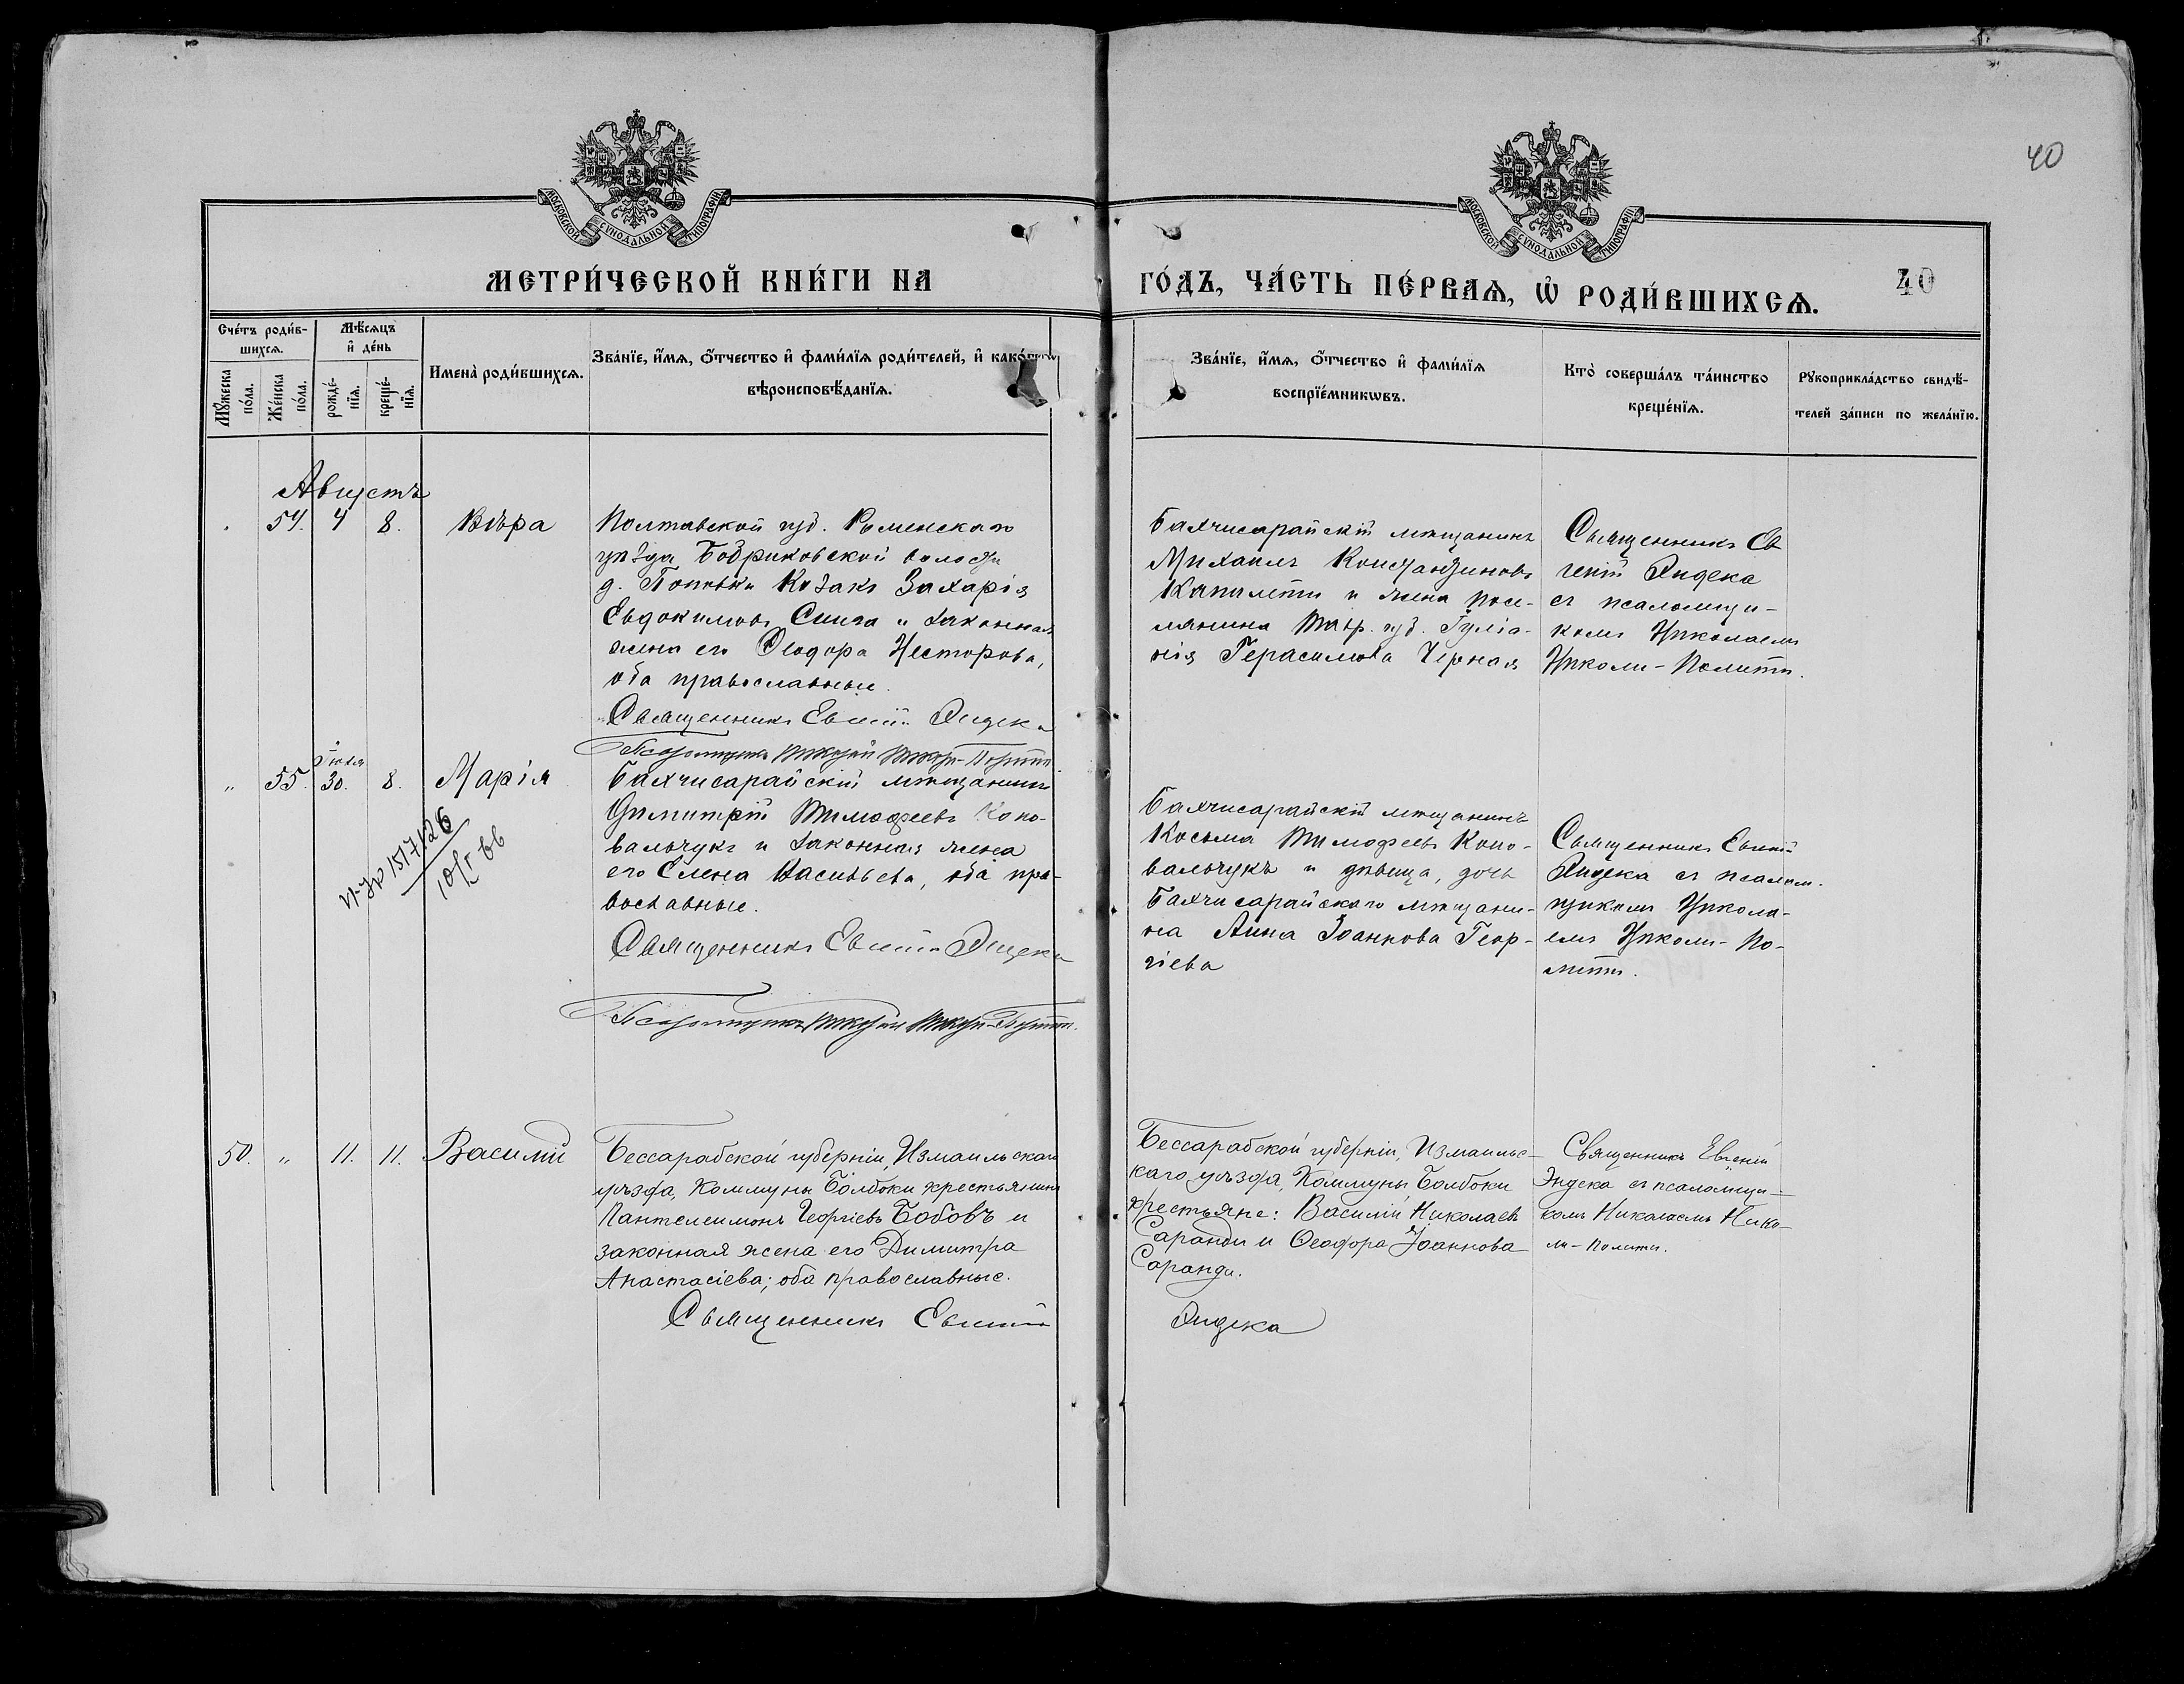 40
МОСКОВСКОЙ СУНОДАЛЬНОЙ ТИПОГРАФІИ
МОСКОВСКОЙ СУНОДАЛЬНОЙ ТИПОГРАФІИ
МЕТРИ́ЧЕСКОЙ КНИ́ГИ НА
ГО́ДЪ, ЧА́СТЬ ПЕ́РВАѦ, Ѿ РОДИ́ВШИХСѦ.
40
Сче́тъ роди́в-
шихсѧ.
Мꙋ́жеска
по́ла.
Же́нска
по́ла.
Мѣ́сѧцъ
и҆ де́нь
рожде́-
нїѧ.
креще́-
нїѧ.
Имена̀ роди́вшихсѧ.
Зва́нїе, и҆́мѧ, ѻ҆́тчество и҆ фами́лїѧ роди́телей, и҆
вѣроисповѣ́данїѧ.
Зва́нїе, и҆́мѧ, ѻ҆́тчество и҆ фами́лїѧ
воспрїе́мникѡвъ.
Кто̀ соверша́лъ та́инство
креще́нїѧ.
Рꙋкоприкла́дство свидѣ́-
телей за́писи по жела́нїю.
Августъ
54. 4 8. Вѣра
Полтавской губ. Роменскаго
уѣзда Бобриковской волости
д. Козакъ Захарія
Евдокимовъ и законная
жена его Ѳеодора Несторова,
оба православные.
Священникъ Евгеній Эндека
Псаломщикъ Николай Николи-Полити.
Бахчисарайскій мѣщанинъ
Михаилъ Константиновъ
Капилетти и жена посе-
лянина Тавр. губ. Гуліа-
нія Герасимова Черная
Священникъ Ев
геній Эндека
съ псаломщи-
комъ Николаемъ
Николи-Полити.
„ 55. Іюля 30. 8. Марія
Бахчисарайскій мѣщанинъ
Димитрій Тимофеевъ Коно-
вальчукъ и законная жена
его Елена Васильева, оба пра-
вославные.
Священникъ Евгеній Эндека
Псаломщикъ Николай Николи-Полити.
10/I 66
Бахчисарайскій мѣщанинъ
Косьма Тимофеевъ Коно-
вальчукъ и дѣвица, дочь
Бахчисарайскаго мѣщани-
на Анна Іоаннова Геор-
гіева
Священникъ Евгеній
Эндека съ псалом-
щикомъ Никола-
емъ Николи-По-
лити.
50. „ 11. 11. Василій
Бессарабской губерніи, Измаильскаго
уѣзда, Коммуны Болбоки крестьянинъ
Пантелеимонъ Георгіевъ Бобовъ и
законная жена его Димитра
Анастасіева; оба православные.
Священникъ Евгеній
Эндека
Бессарабской губерніи, Измаильс-
каго уѣзда, Коммуны Болбоки
крестьяне: Василій Николаевъ
Саранди и Ѳеодора Іоаннова
Саранди.
Священникъ Евгеній
Эндека съ псаломщи-
комъ Николаемъ Нико-
ли-Полити.